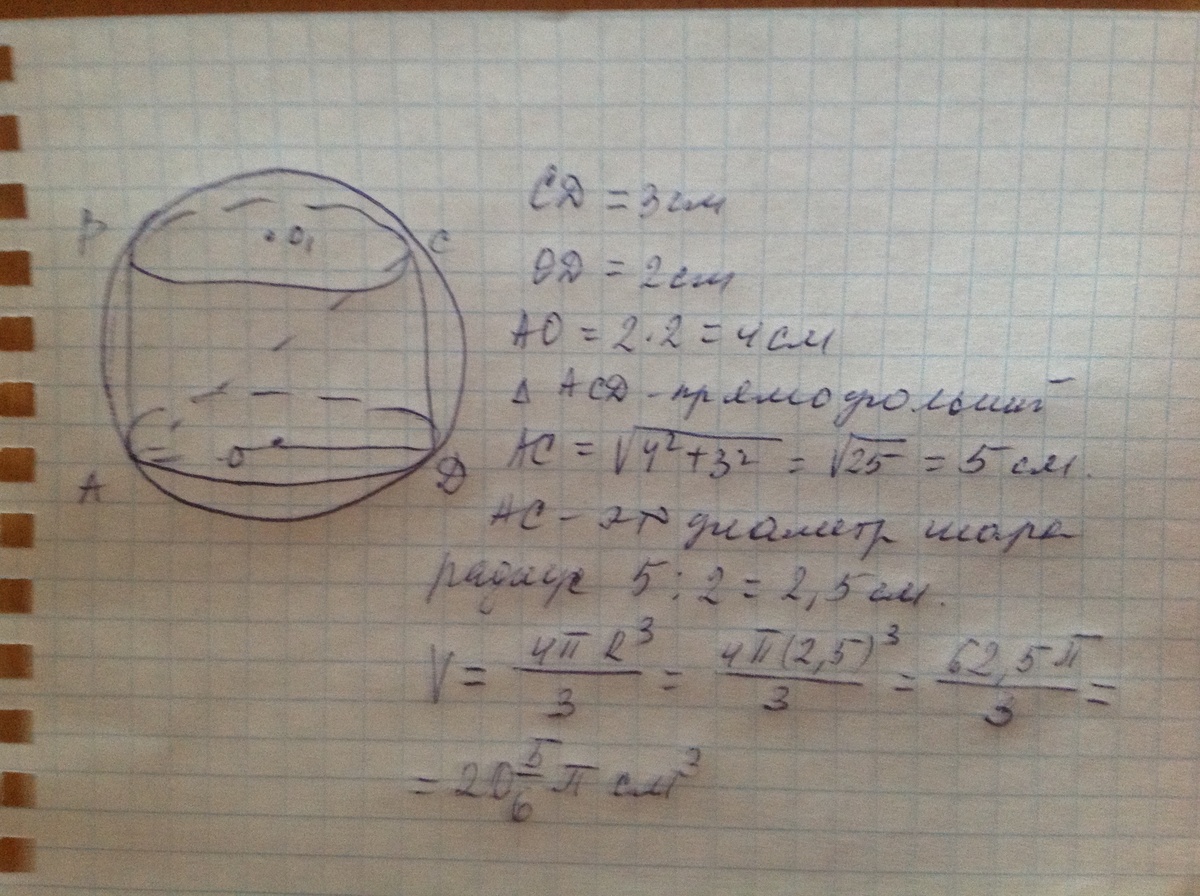 B O₁ C
A O D
CD = 3 см
OD = 2 см
AO = 2·2 = 4 см
Δ ACD - прямоугольний
AC = √4²+3² = √25 = 5 см.
AC - эт диаметр шара
радиус 5 : 2 = 2,5 см.
V = 4π R³/3 = 4π(2,5)³/3 = 62,5π/3 =
= 20 5/6 π см³